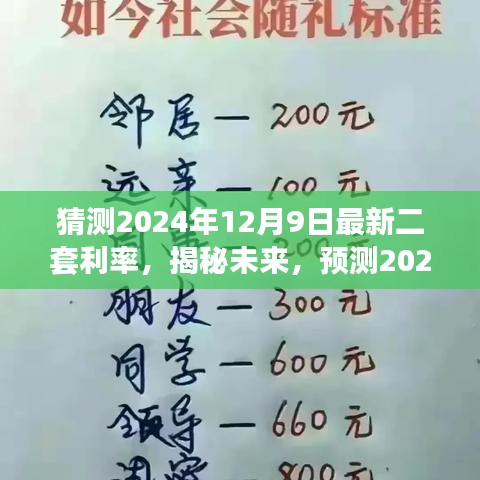 如今社会随礼标准
邻居—200元
远亲—100元
猜测2024年12月9日最新二
套利率，揭秘未来，预测202
朋友—300元
同学—600元
领导—660元
—800元